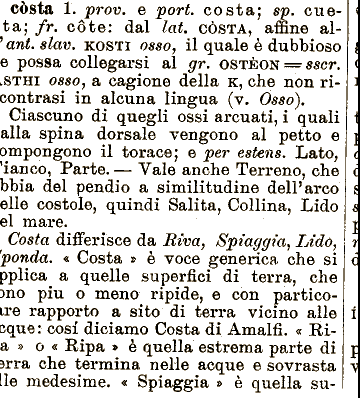 còsta 1. prov. e port. costa; sp. cue-
ta; fr. côte: dal lat. CÒSTA, affine al-
'ant. slav. KOSTI osso, il quale è dubbioso
e possa collegarsi al gr. OSTÈON = sscr.
ASTHI osso, a cagione della K, che non ri-
contrasi in alcuna lingua (v. Osso).
Ciascuno di quegli ossi arcuati, i quali
alla spina dorsale vengono al petto e
ompongono il torace; e per estens. Lato,
Fianco, Parte. — Vale anche Terreno, che
bbia del pendio a similitudine dell'arco
elle costole, quindi Salita, Collina, Lido
el mare.
Costa differisce da Riva, Spiaggia, Lido,
ponda. « Costa » è voce generica che si
pplica a quelle superfici di terra, che
ono piu o meno ripide, e con partico-
are rapporto a sito di terra vicino alle
cque: cosí diciamo Costa di Amalfi. « Ri-
a » o « Ripa » è quella estrema parte di
erra che termina nelle acque e sovrasta
lle medesime. « Spiaggia » è quella su-